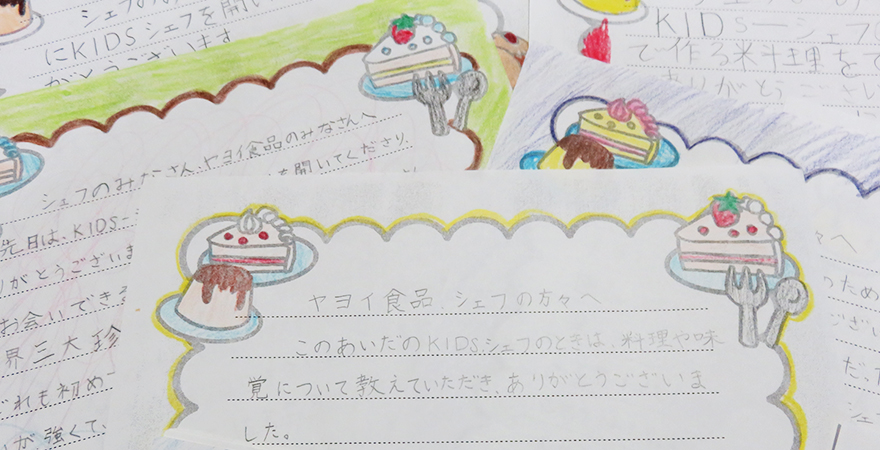 シェフの
にKIDSシェフを開い
がとうございます
KIDSーシェフ
で作る料理を
ありがとうござい
シェフのみなさん、ヤヨイ食品のみなさんへ
先日は、KIDSー
を開いてくださり、
りがとうございま
お会いできる
界三大珍
どれも初め
が強くて、
ヤヨイ食品、シェフの方々へ
このあいだのKIDS、シェフのときは、料理や味
覚について教えていただき、ありがとうございま
した。
々へ
ため
ござい
だっ
シェ